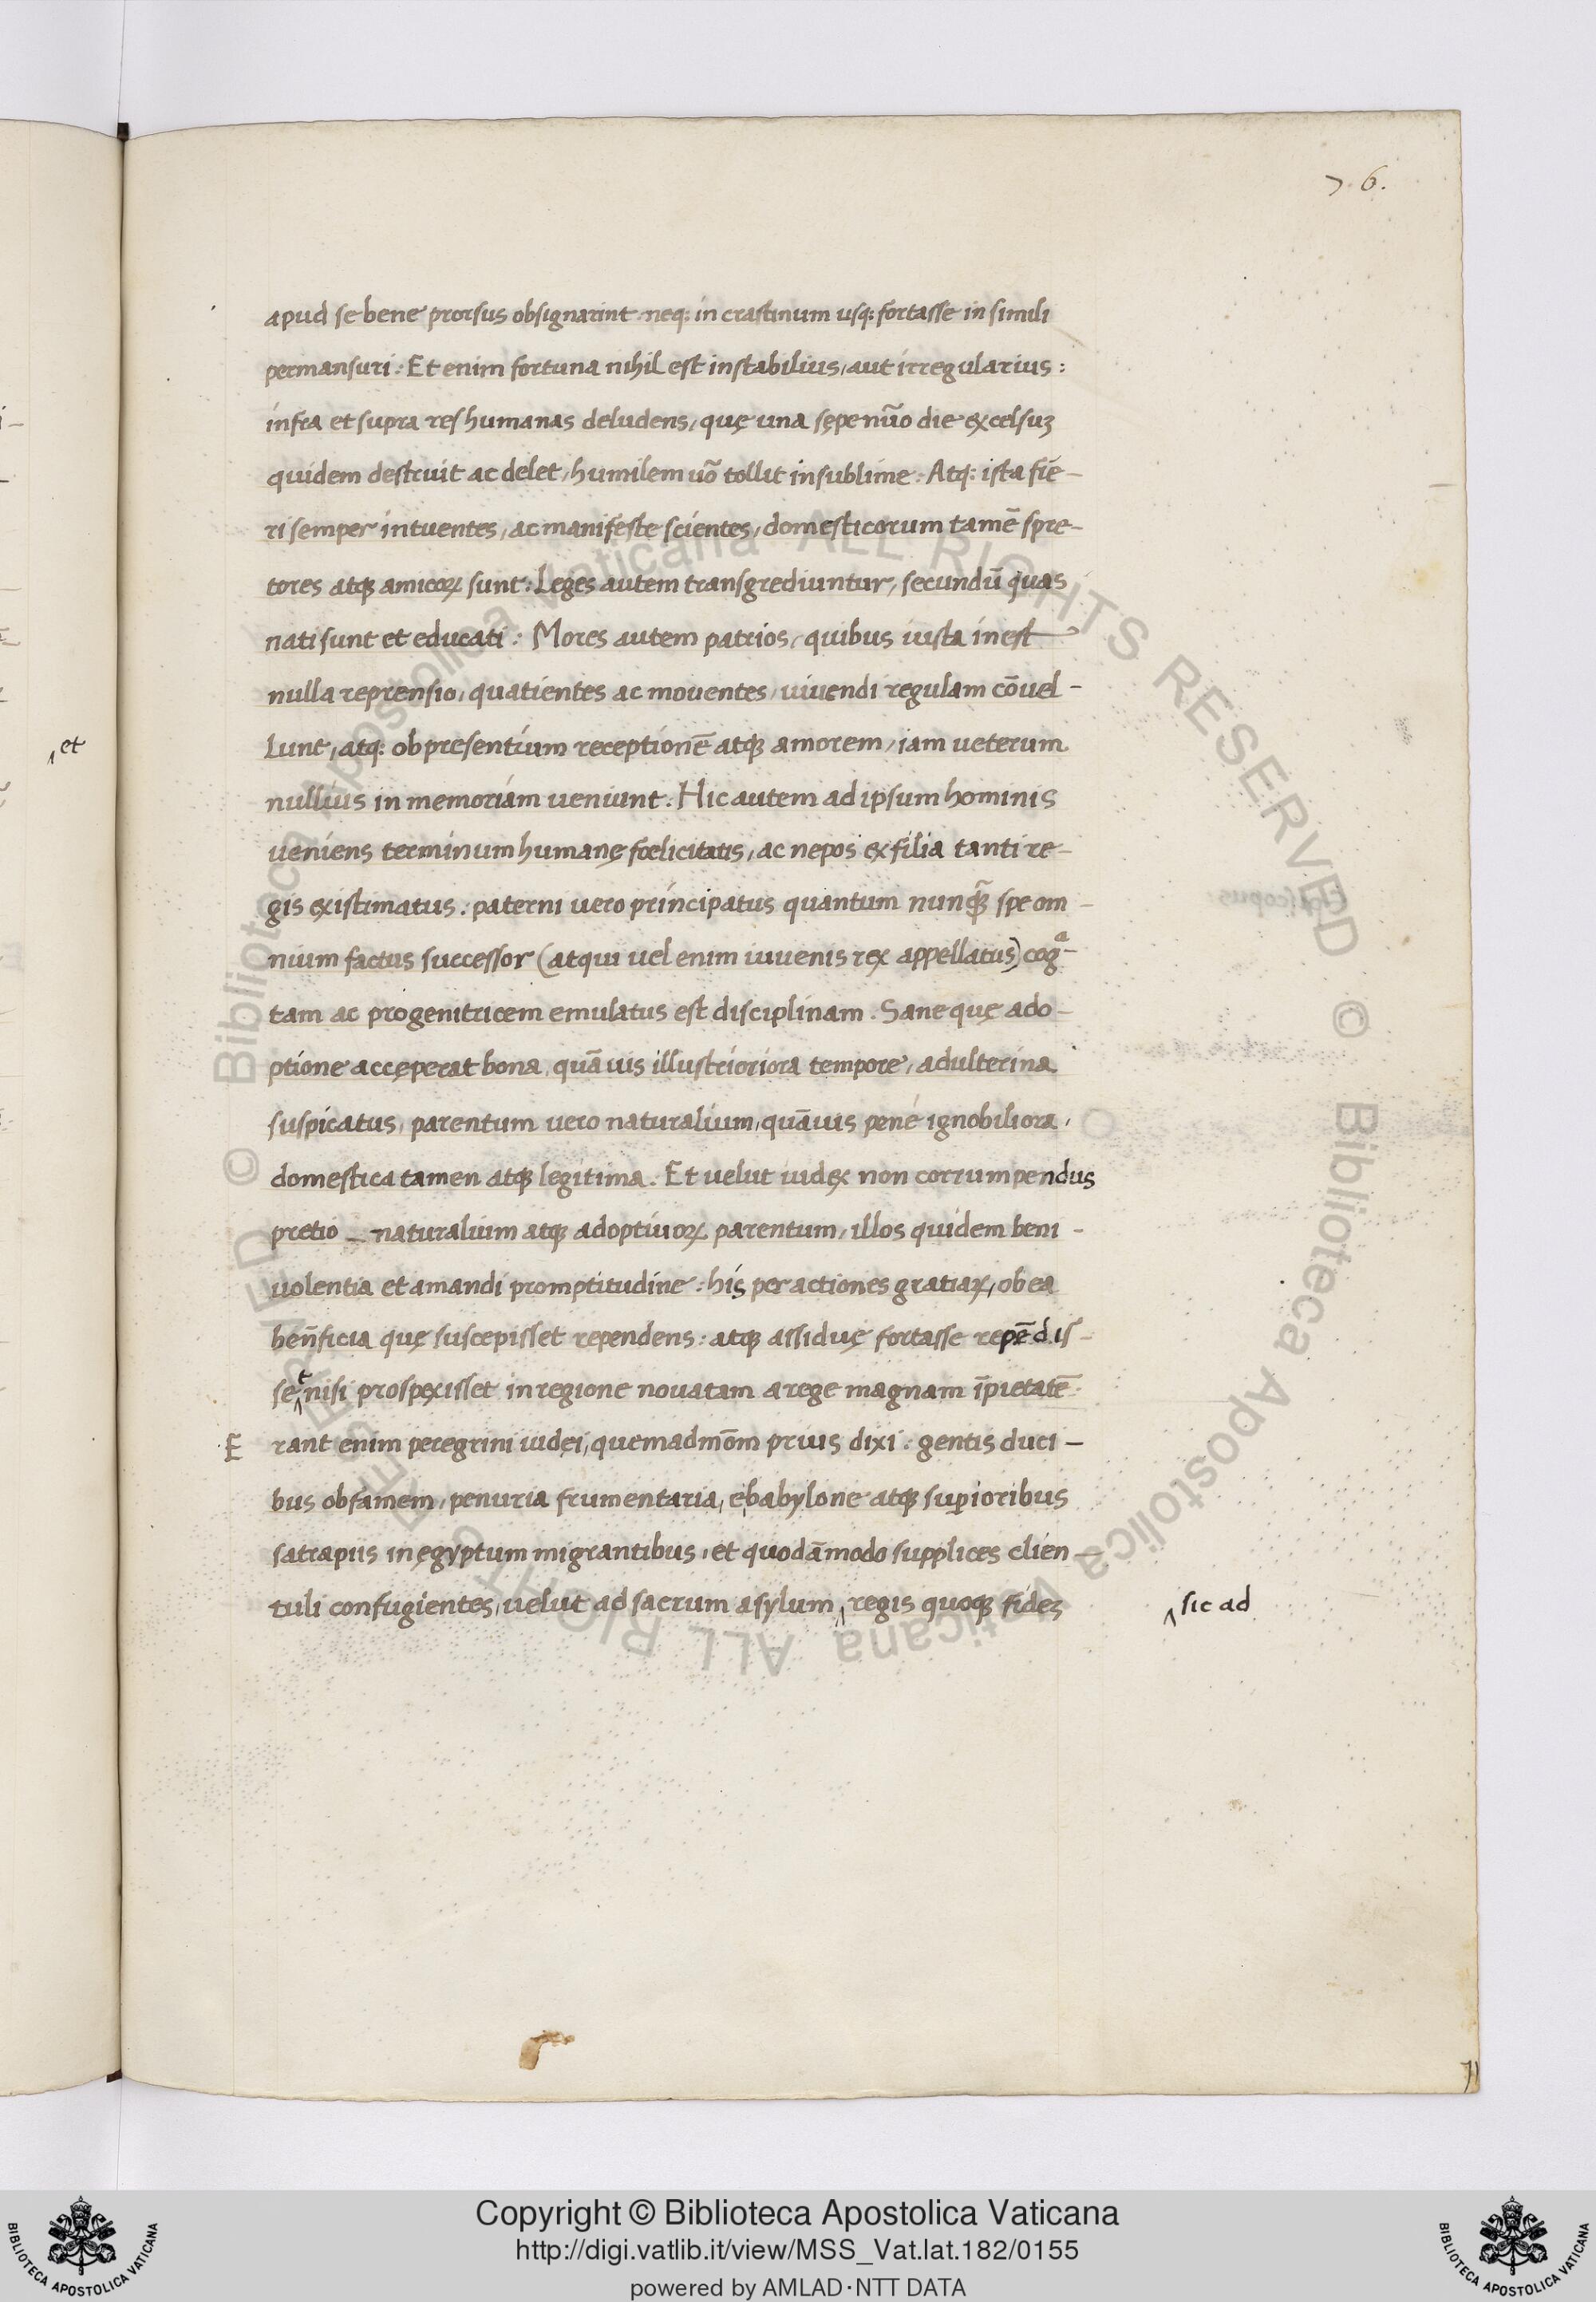 7 6.
apud se bene prorsus obsignarint neq; in crastinum usq; fortasse in simili
permansuri : Et enim fortuna nihil est instabilius, aut irregularius :
infra et supra res humanas deludens, quę una sępe nūo die excelsuꝫ
quidem destruit ac delet, humilem uō tollit in sublime . Atq; ista fie-
ri semper intuentes, ac manifeste scientes, domesticorum tamē spre-
tores atqꝫ amicoꝝ sunt : Leges autem transgrediuntur, secundū quas
nati sunt et educati : Mores autem patrios, quibus iusta inest
nulla reprensio, quatientes ac mouentes, uiuendi regulam cōuel-
lunt, atq; ob presentium receptionē atqꝫ amorem, iam ueterum
^et
nullius in memoriam ueniunt . Hic autem ad ipsum hominis
ueniens terminum humanę fœlicitatis, ac nepos ex filia tanti re-
gis existimatus : paterni uero principatus quantum nunqꝫ̄ spe om-
nium factus successor (atqui uel enim iuuenis rex appellatus) cogᵃ-
tam ac progenitricem emulatus est disciplinam . Sane quę ado-
ptione accęperat bona, quāuis illustrioriora tempore, adulterina
suspicatus, parentum uero naturalium, quāuis pené ignobiliora,
domestica tamen atqꝫ legitima . Et uelut iudex non corrumpendus
pretio _ naturalium atqꝫ adoptiuoꝝ parentum, illos quidem beni-
uolentia et amandi promptitudine : his per actiones gratiaꝝ, ob ea
ben̄ficia quę suscepisset rependens : atqꝫ assiduę fortasse repēdis-
se^t nisi prospexisset in regione nouatam a rege magnam īpietatē.
E rant enim peregrini iudei, quemadmōm prius dixi : gentis duci-
bus ob famem, penuria frumentaria, e babylone atqꝫ superioribus
satrapiis in ęgyptum migrantibus, et quodāmodo supplices clien-
tuli confugientes, uelut ad sacrum asylum ^ regis quoqꝫ fideꝫ
^ sic ad
71
Copyright © Biblioteca Apostolica Vaticana
http://digi.vatlib.it/view/MSS_Vat.lat.182/0155
powered by AMLAD·NTT DATA
BIBLIOTECA APOSTOLICA VATICANA
BIBLIOTECA APOSTOLICA VATICANA